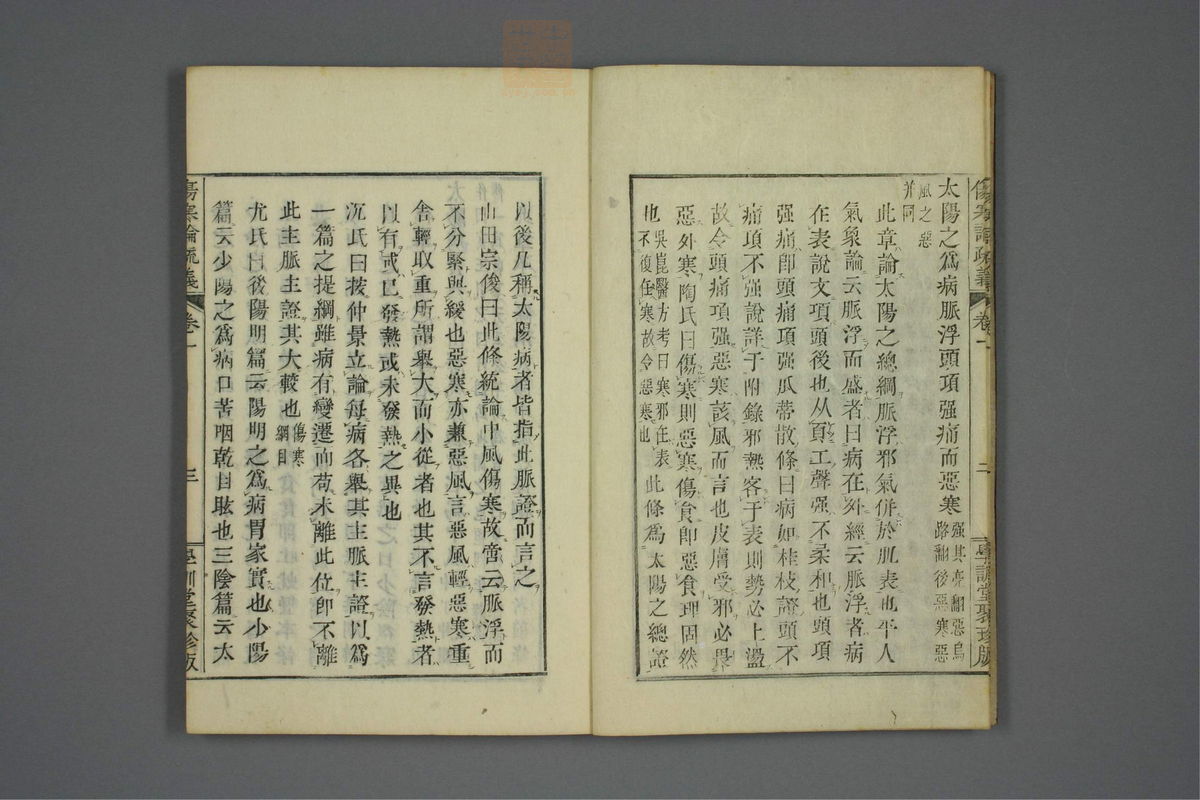 傷寒論疏義 卷一 二 學訓堂聚珍版
太陽之爲病脈浮頭項强痛而惡寒 强其亮翻惡烏
路翻後惡寒惡
風之惡
並同
此章論太陽之總綱脈浮邪氣併於肌表也平人
氣象論云脈浮而盛者曰病在外經云脈浮者病
在表說文項頭後也从頁工聲强不柔和也頭項
强痛卽頭痛項强瓜蒂散條曰病如桂枝證頭不
痛項不强說詳于附錄邪熱客于表則勢必上盪
故令頭痛項强惡寒該風而言也皮膚受邪必畏
惡外寒陶氏曰傷寒則惡寒傷食卽惡食理固然
也 吳崑醫方考曰寒邪在表
不復任寒故令惡寒也 此條爲太陽之總證
以後凡稱太陽病者皆指此脈證而言之
山田宗俊曰此條統論中風傷寒故啻云脈浮而
不分緊與緩也惡寒亦兼惡風言惡風輕惡寒重
舍輕取重所謂舉大而小從者也其不言發熱者
以有或已發熱或未發熱之異也
沉氏曰按仲景立論每病各舉其主脈主證以爲
一篇之提綱雖病有變遷而苟未離此位卽不離
此主脈主證其大較也 傷寒
綱目
尤氏曰後陽明篇云陽明之爲病胃家實也少陽
篇云少陽之爲病口苦咽乾目眩也三陰篇云太
傷寒論疏義 卷一 三 學訓堂聚珍版